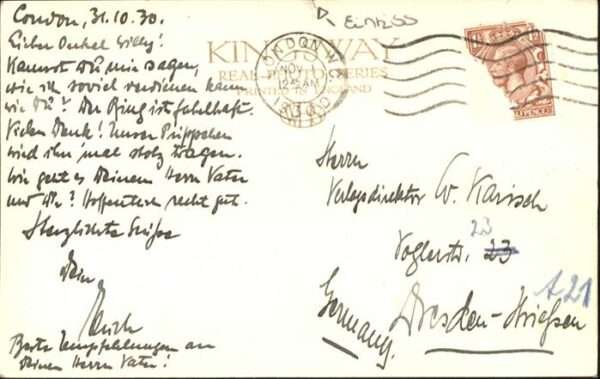 London, 31.10.30.
Lieber Onkel Willy!
Kannst Du mir sagen,
wie ich soviel verdienen kann
wie Du? Der Ring ist fabelhaft.
Vielen Dank! Unser Püppchen
wird ihn 'mal stolz tragen.
Wie geht es Deinem Herrn Vater
und Dir? Hoffentlich recht gut.
Herzlichste Grüsse
Dein
Beste Empfehlungen an
Deinen Herrn Vater!
Einriss
KINGSWAY
REAL PHOTO SERIES
PRINTED IN ENGLAND
LONDON W
NOV
12 AM
1930
Herrn
Verlagsdirektor W. Karisch
Voglerstr. 23
23
A21
Dresden-Striesen
Germany.